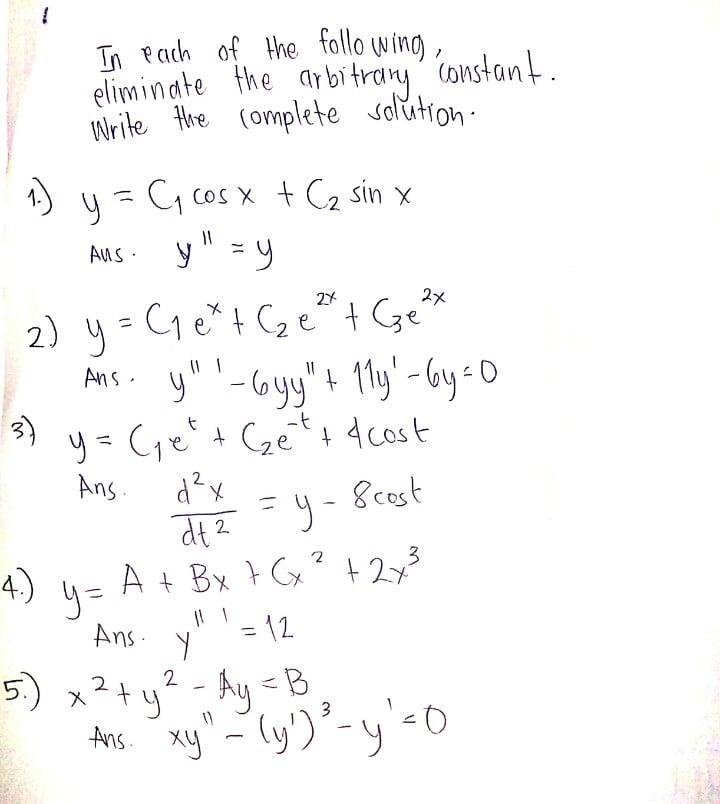 In each of the following,
eliminate the arbitrary constant.
Write the complete solution.
1.) y = C₁ cos x + C₂ sin x
Ans. y'' = y
2) y = C₁eˣ + C₂e²ˣ + C₃e²ˣ
Ans. y''' - 6yy'' + 11y' - 6y = 0
3) y = C₁eᵗ + C₂e⁻ᵗ + 4cost
Ans. d²x/dt² = y - 8cost
4.) y = A + Bx + Cx² + 2x³
Ans. y''' = 12
5.) x² + y² - Ay = B
Ans. xy'' - (y')³ - y' = 0